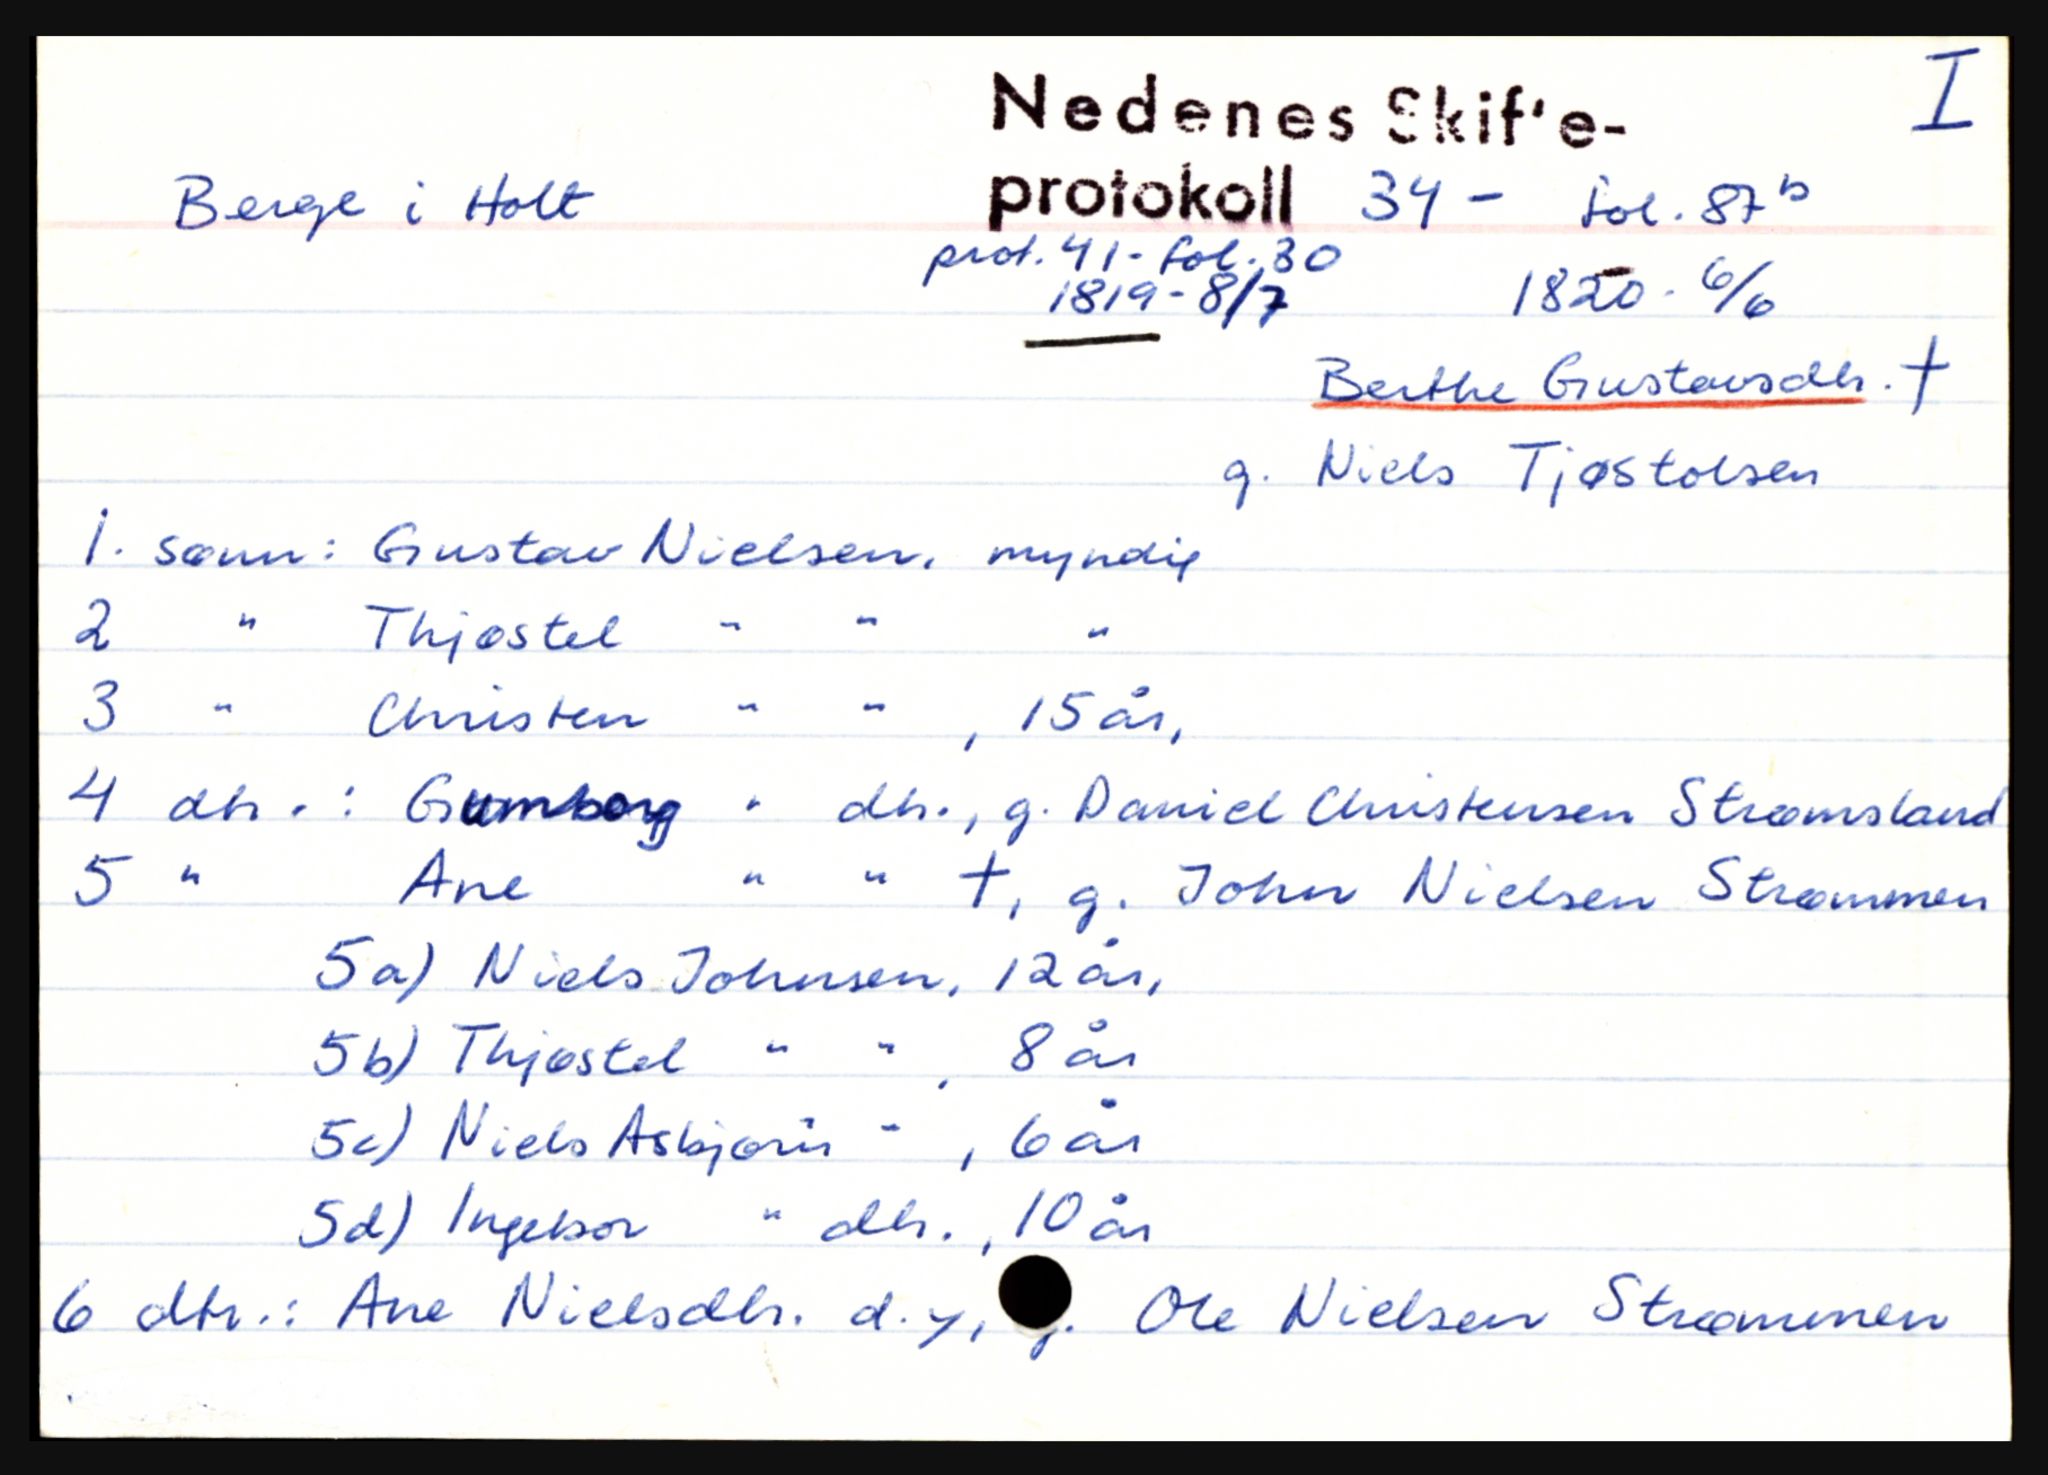 I
Nedenes Skif'e-
Berge i Holt
protokoll 34 - fol. 87 b
prot. 41 - fol. 30
1819 - 8/7
1820 - 6/6
Berthe Gustavsdtr. †
g. Niels Tjøstolsen
1. sønn: Gustav Nielsen, myndig
2 " Thjøstel " " "
3 " Christen " " , 15 år,
4 dtr. : Gumborg " dtr., g. Daniel Christensen Strømsland
5 " Ane " " †, g. John Nielsen Strømmen
5a) Niels Johnsen, 12 år,
5b) Thjøstel " " , 8 år
5c) Niels Asbjørn " , 6 år
5d) Ingebor " dtr., 10 år
6 dtr.: Ane Nielsdtr. d.y, g. Ole Nielsen Strømmen